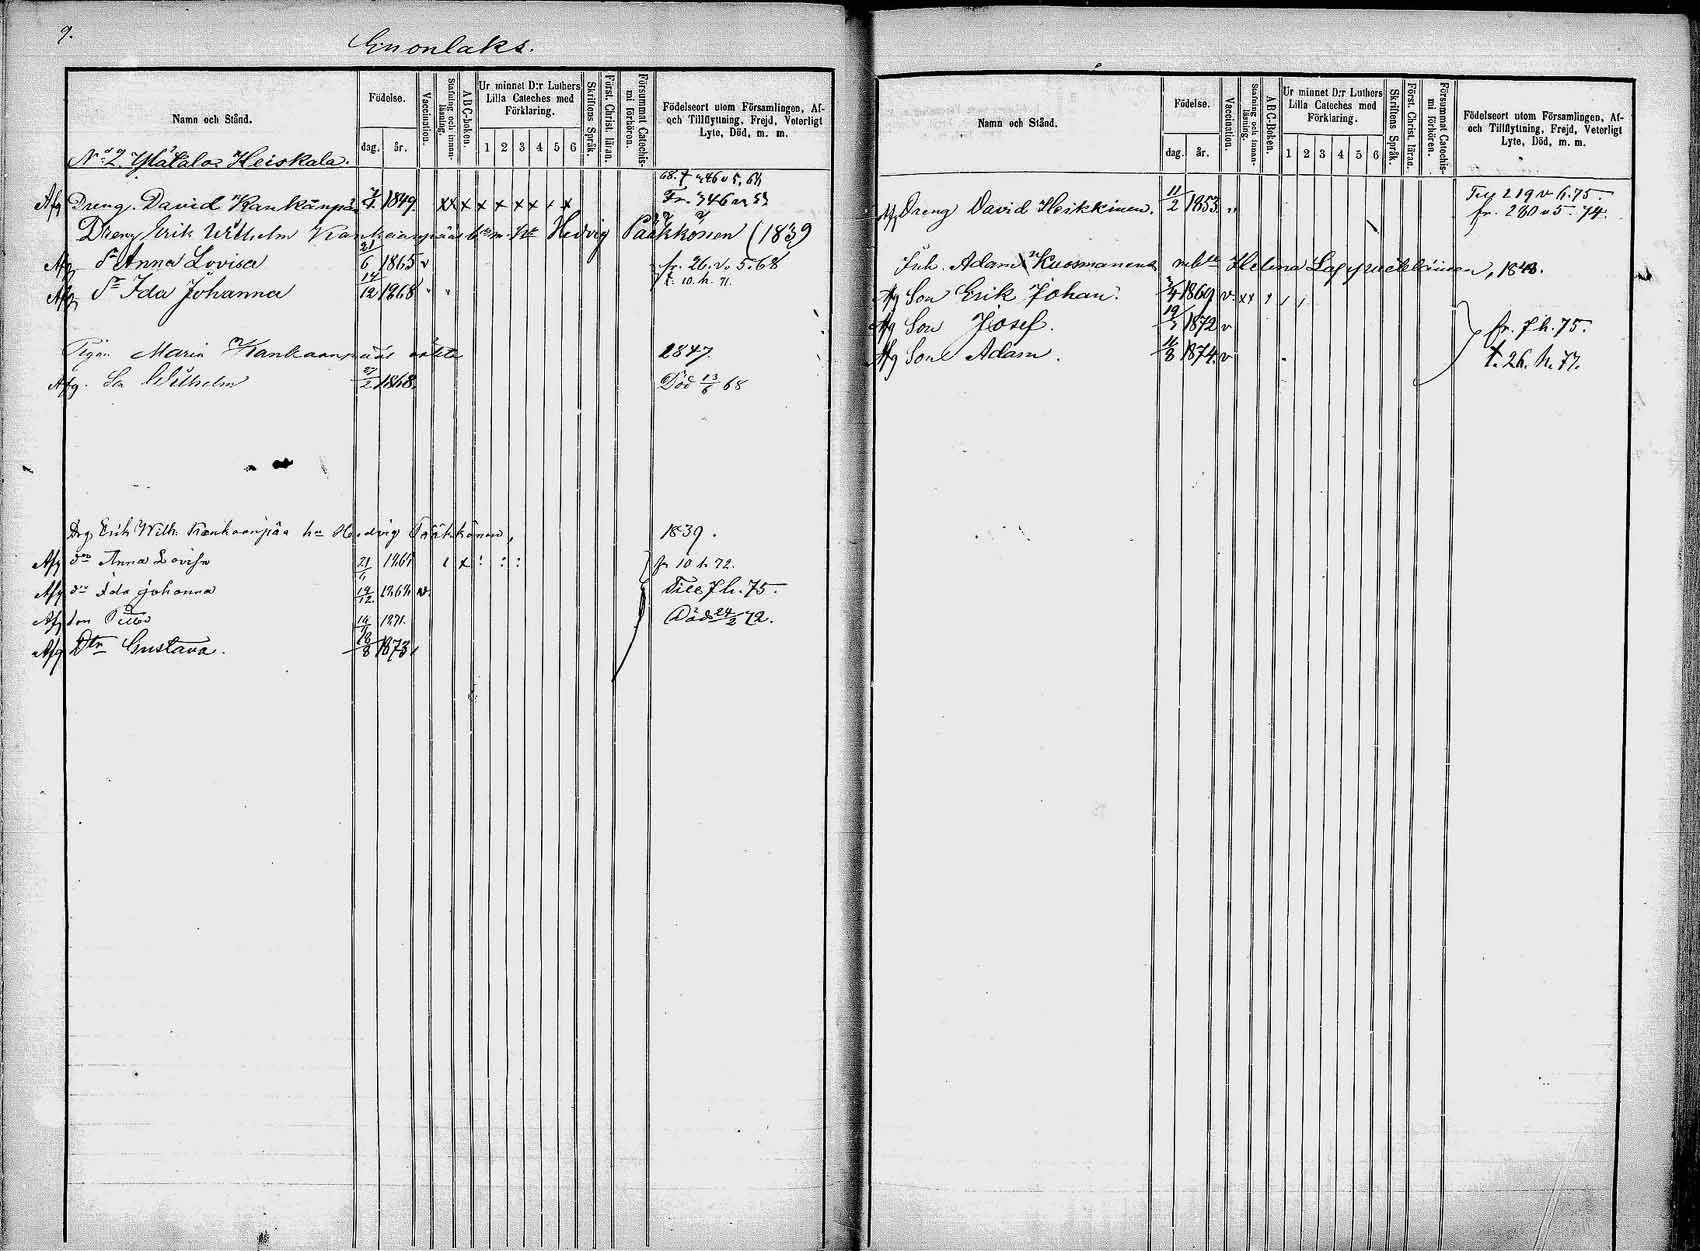 9.
Enonlaks.
Namn och Stånd.
Födelse.
dag. år.
Vaccination.
Stafning och innan-läsning.
A B C-boken.
Ur minnet D:r Luthers
Lilla Cateches med
Förklaring.
1 2 3 4 5 6
Skriftens Språk.
Först. Christ. läran.
Försummat Catechis-
mi förhören.
Födelseort utom Församlingen, Af-
och Tillflyttning, Frejd, Veterligt
Lyte, Död, m. m.
N:o 2 Heiskala.
Afg Dreng. David Kankänpää 1849. x x x x x x x x
Dreng Erik Wilhelm Kankaanpääs hu Hedvig Pääkkönen (1839
Afg Dr Anna Lovisa 21/6 1865 v fr. 26. v. 5. 68
t. 10. h. 71.
Afg Dr Ida Johanna 14/12 1868
Pigan Maria Kankaanpääs oäkta 1847.
Afg. Son Wilhelm 27/2 1868. Död 13/6 68
Drg. Erik Wilh. Kankaanpää hu Hedvig Pääkkönen, 1839.
Afg dr Anna Lovisa 21/6 1865 fr 10 h. 72.
Afg dr Ida Johanna 14/12 1868 v. Till 7 h. 75.
Afg son Petter 1871. Död 24/2 72.
Afg Dtr Gustava. 18/8 1873
Namn och Stånd.
Födelse.
dag. år.
Vaccination.
Stafning och innan-läsning.
A B C-Boken.
Ur minnet D:r Luthers
Lilla Cateches med
Förklaring.
1 2 3 4 5 6
Skriftens Språk.
Först. Christ. läran.
Försummat Catechis-
mi förhören.
Födelseort utom Församlingen, Af-
och Tillflyttning, Frejd, Veterligt
Lyte, Död, m. m.
Till 219 v h. 75.
Afg Dreng David Heikkinen. 11/2 1853 fr. 280 v 5 74.
Inh. Adam Kuosmanens Helena 1843.
Afg Son Erik Johan. 1869 v. x x
Afg Son Josef. 1872 v fr. 7 h. 75.
Afg Son Adam. 16/8 1874 v t. 26. h. 77.